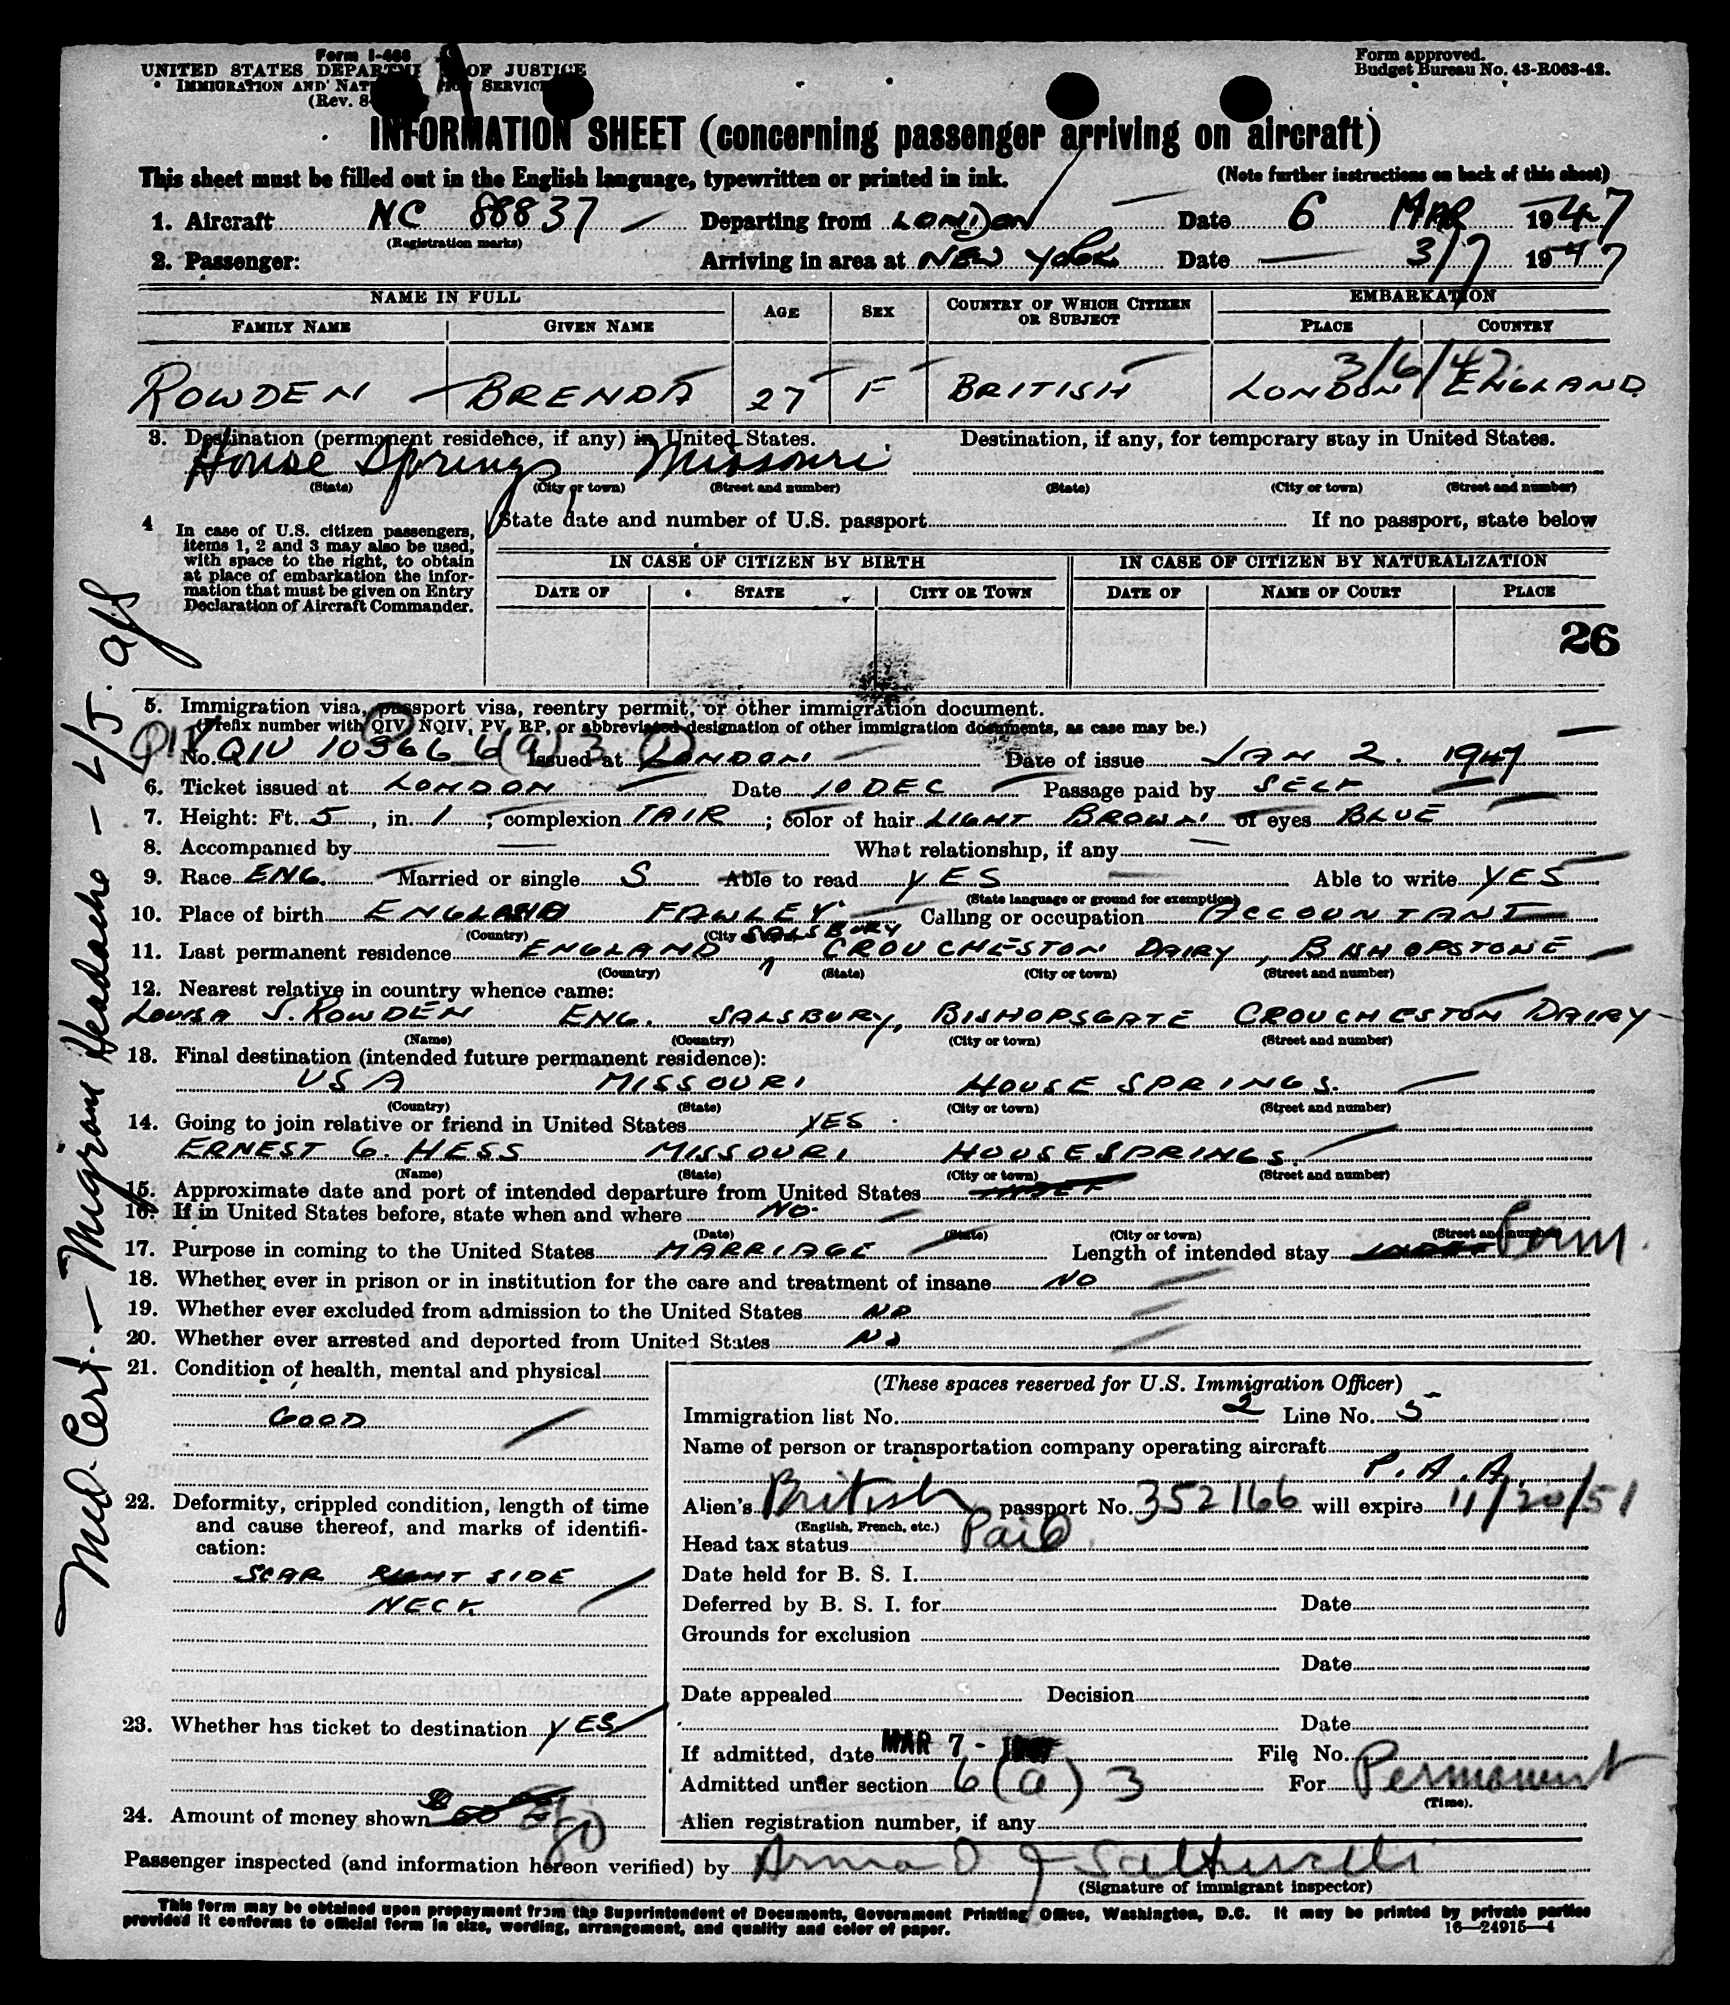 Form I-466
UNITED STATES DEPARTMENT OF JUSTICE
IMMIGRATION AND NATURALIZATION SERVICE
(Rev. 8-
Form approved.
Budget Bureau No. 43-R063-42.
INFORMATION SHEET (concerning passenger arriving on aircraft)
This sheet must be filled out in the English language, typewritten or printed in ink. (Note further instructions on back of this sheet)
1. Aircraft NC 88837 Departing from LONDON Date 6 MAR 1947
(Registration marks)
2. Passenger: Arriving in area at NEW YORK Date 3/7 1947
NAME IN FULL AGE SEX COUNTRY OF WHICH CITIZEN OR SUBJECT EMBARKATION
FAMILY NAME GIVEN NAME PLACE COUNTRY
3/6/47
ROWDEN BRENDA 27 F BRITISH LONDON ENGLAND
3. Destination (permanent residence, if any) in United States. Destination, if any, for temporary stay in United States.
House Springs, Missouri
(State) (City or town) (Street and number) (State) (City or town) (Street and number)
4 In case of U.S. citizen passengers, items 1, 2 and 3 may also be used, with space to the right, to obtain at place of embarkation the information that must be given on Entry Declaration of Aircraft Commander.
State date and number of U.S. passport If no passport, state below
IN CASE OF CITIZEN BY BIRTH IN CASE OF CITIZEN BY NATURALIZATION
DATE OF STATE CITY OR TOWN DATE OF NAME OF COURT PLACE
26
5. Immigration visa, passport visa, reentry permit, or other immigration document.
(Prefix number with QIV, NQIV, PV, RP, or abbreviated designation of other immigration documents, as case may be.)
No. QIV 10366 6(a)3 Issued at LONDON Date of issue JAN 2. 1947
6. Ticket issued at LONDON Date 10 DEC Passage paid by SELF
7. Height: Ft. 5, in. 1; complexion FAIR; color of hair LIGHT BROWN of eyes BLUE
8. Accompanied by — What relationship, if any —
9. Race ENG. Married or single S Able to read YES Able to write YES
(State language or ground for exemption)
10. Place of birth ENGLAND FAWLEY Calling or occupation ACCOUNTANT
(Country) (City
SALSBURY
11. Last permanent residence ENGLAND CROUCHESTON DAIRY, BISHOPSTONE
(Country) (State) (City or town) (Street and number)
12. Nearest relative in country whence came:
LOUISA S. ROWDEN ENG. SALSBURY, BISHOPSGATE CROUCHESTON DAIRY
(Name) (Country) (City or town) (Street and number)
13. Final destination (intended future permanent residence):
USA MISSOURI HOUSE SPRINGS.
(Country) (State) (City or town) (Street and number)
14. Going to join relative or friend in United States YES
ERNEST G. HESS MISSOURI HOUSE SPRINGS.
(Name) (State) (City or town) (Street and number)
15. Approximate date and port of intended departure from United States
16. If in United States before, state when and where NO.
(Date) (State) (City or town) (Street and number)
17. Purpose in coming to the United States MARRIAGE Length of intended stay Perm.
18. Whether ever in prison or in institution for the care and treatment of insane NO
19. Whether ever excluded from admission to the United States NO
20. Whether ever arrested and deported from United States NO
21. Condition of health, mental and physical
GOOD
22. Deformity, crippled condition, length of time and cause thereof, and marks of identification:
SCAR RIGHT SIDE
NECK
23. Whether has ticket to destination YES
24. Amount of money shown
(These spaces reserved for U.S. Immigration Officer)
Immigration list No. 2 Line No. 5
Name of person or transportation company operating aircraft
P.A.A.
Alien's British passport No. 352166 will expire 11/20/51
(English, French, etc.)
Head tax status Paid
Date held for B. S. I.
Deferred by B. S. I. for Date
Grounds for exclusion
Date
Date appealed Decision
Date
If admitted, date MAR 7 - File No.
Admitted under section 6(a)3 For Permanent
(Time).
Alien registration number, if any
Passenger inspected (and information hereon verified) by
(Signature of immigrant inspector)
This form may be obtained upon prepayment from the Superintendent of Documents, Government Printing Office, Washington, D.C. It may be printed by private parties
provided it conforms to official form in size, wording, arrangement, and quality and color of paper. 16—24915—4
Med. Cert. - Migram Headache -